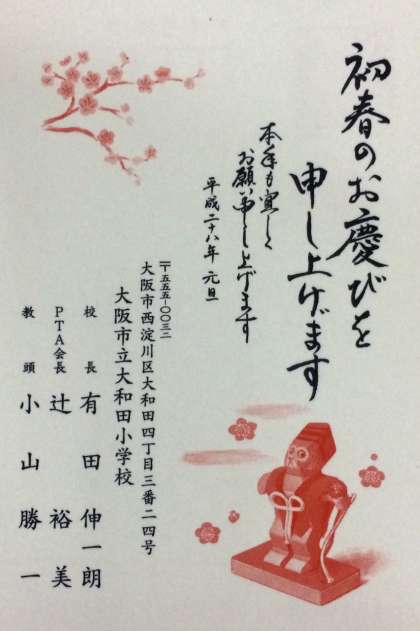 初春のお慶びを
申し上げます
本年も宜しく
お願い申し上げます
平成二十八年 元旦
〒五五五-〇〇三二
大阪市西淀川区大和田四丁目三番二四号
大阪市立大和田小学校
校長 有田伸一朗
PTA会長 辻裕美
教頭 小山勝一